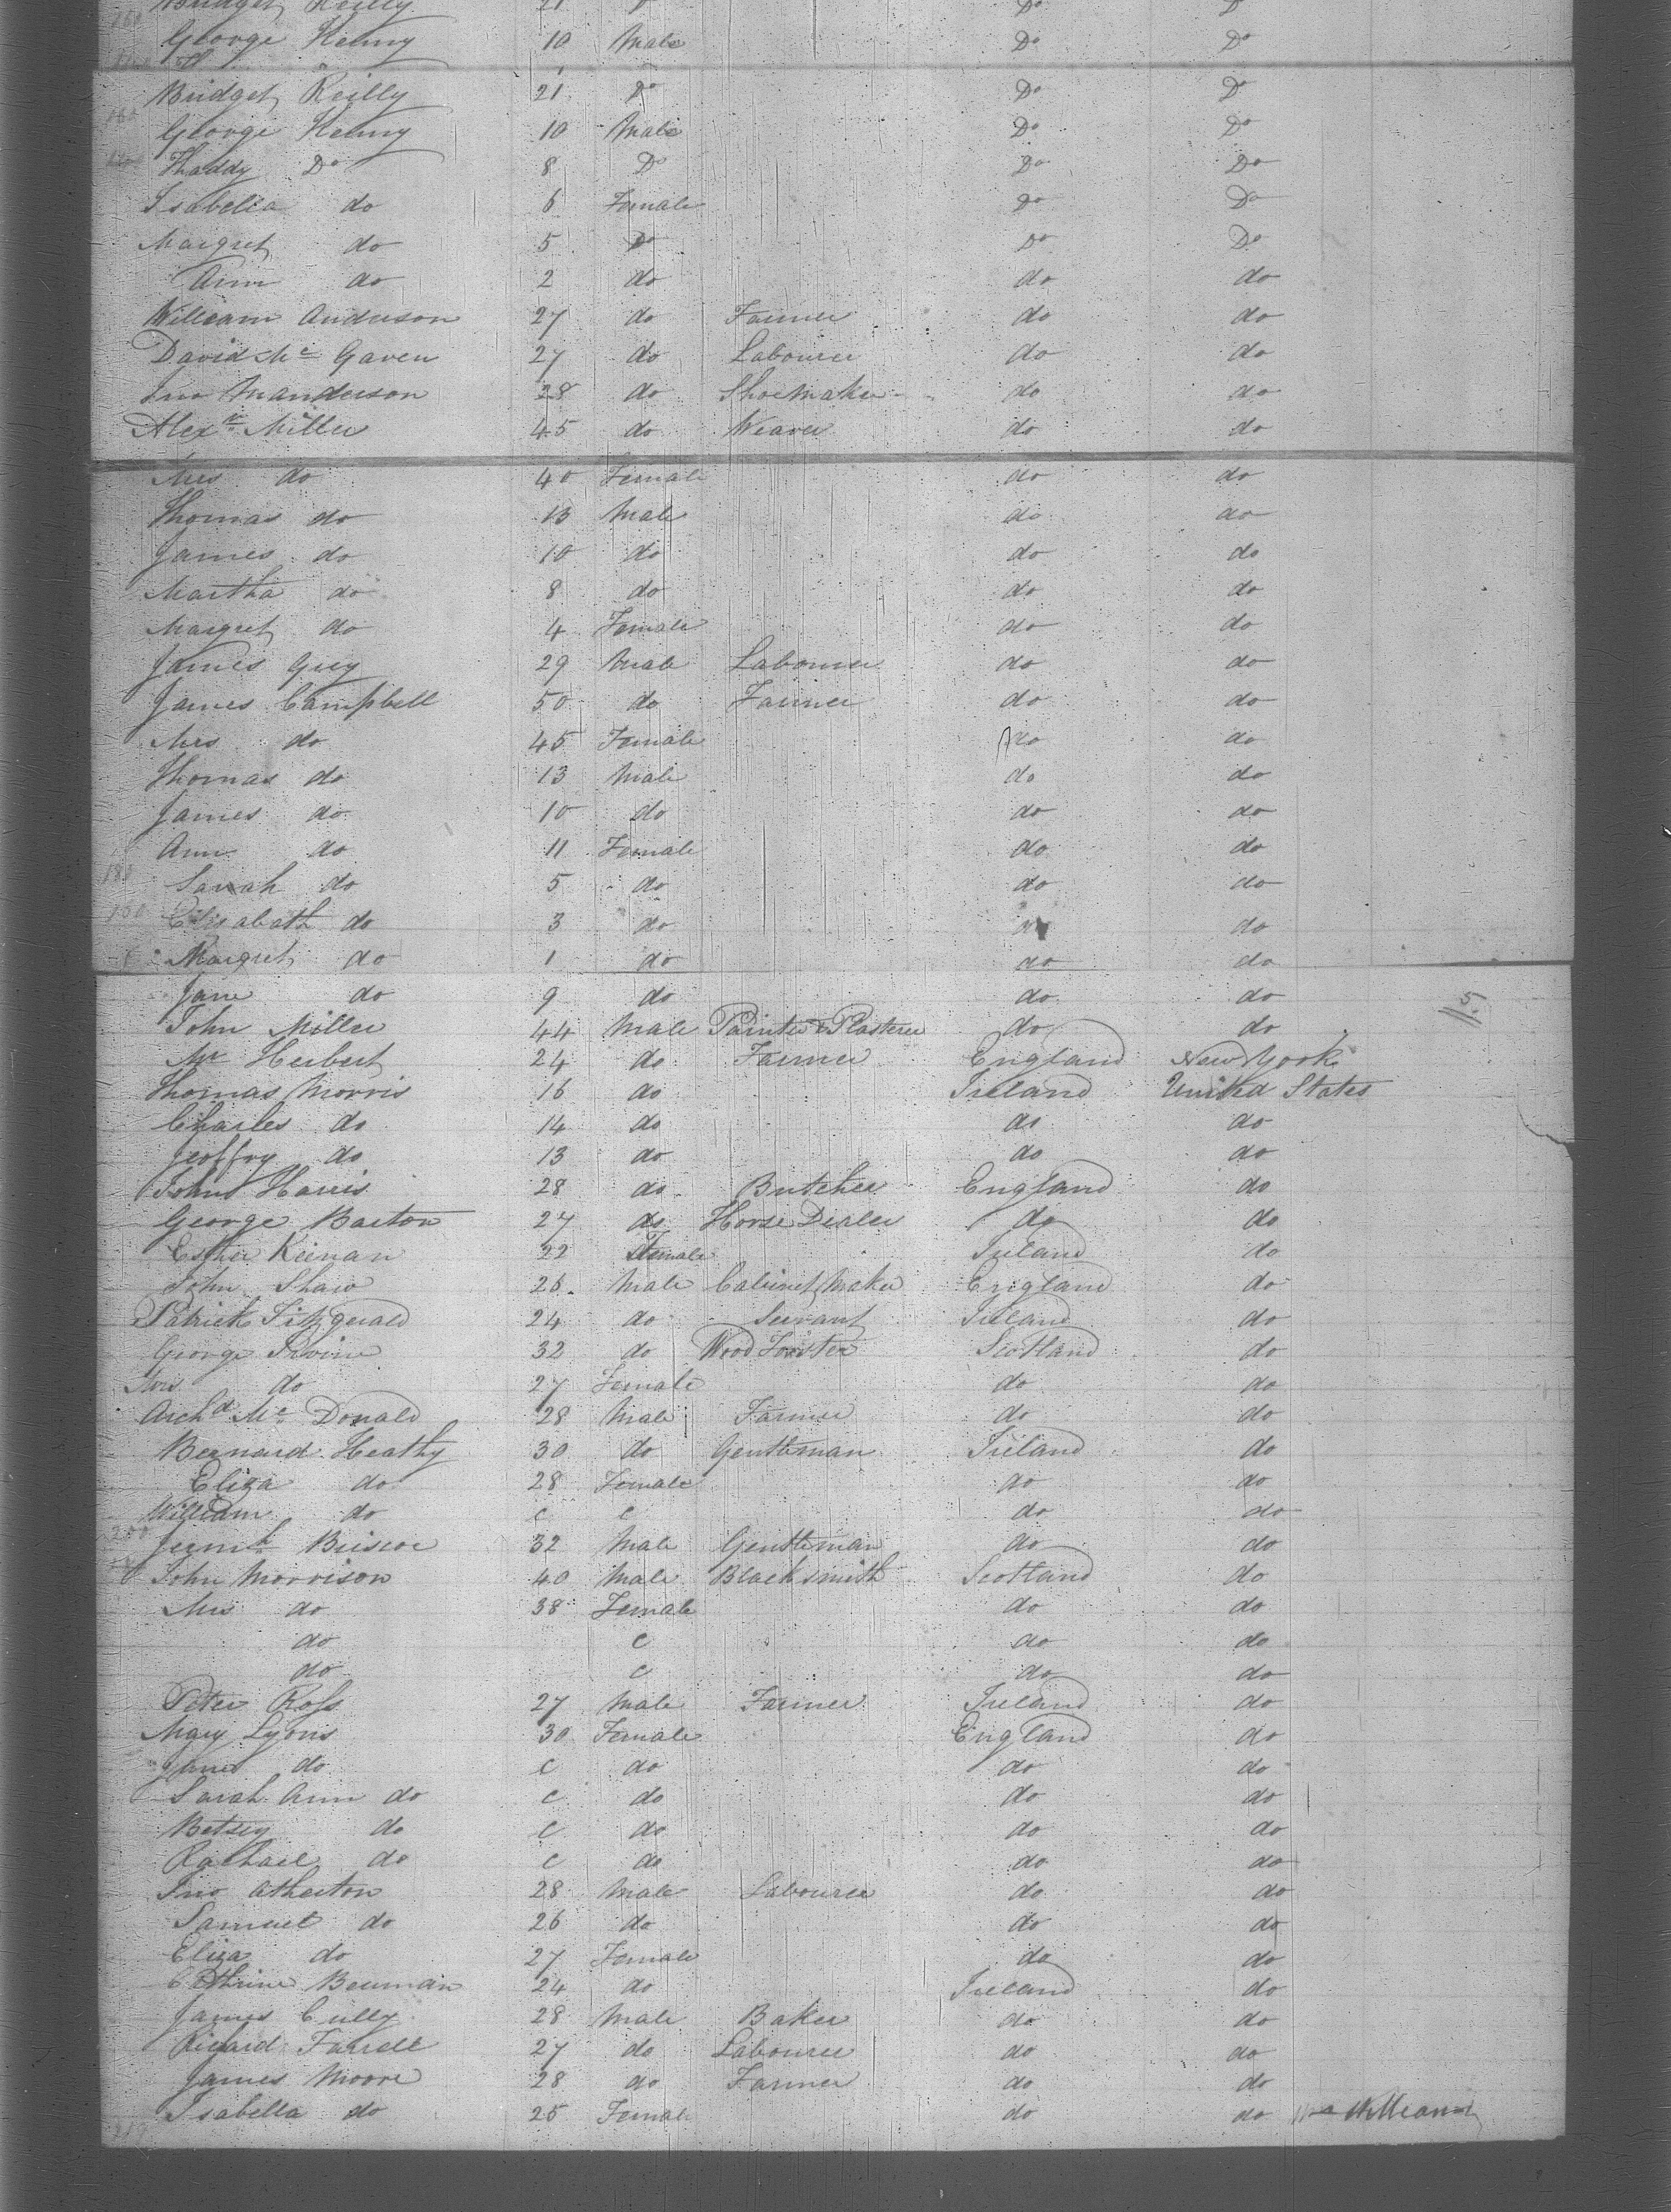 Bridget Reilly 21 Do Do D
George Kenny 10 Male Do Do
Bridget Reilly 21 Do Do Do
160 George Kenny 10 Male Do Do
Thaddy Do 8 Do Do Do
Isabella do 6 Female Do Do
Margret do 5 Do Do Do
Ann do 2 do do do
William Anderson 27 do Farmer do do
David Mc Gaven 27 do Labourer do do
Jno Manderson 28 do Shoemaker do do
Alexr Miller 45 do Weaver do do
Mrs do 40 Female do do
Thomas do 13 Male do do
James do 10 do do do
Martha do 8 do do do
Margret do 4 Female do do
James Guy 29 Male Labourer do do
James Campbell 50 do Farmer do do
Mrs do 45 Female do do
Thomas do 13 Male do do
James do 10 do do do
Ann do 11 Female do do
Sarah do 5 do do do
180 Elisabath do 3 do do do
Margret do 1 do do do
Jane do 9 do do do
John Miller 44 Male Painter & Plasterer do do
Mr Herbert 24 do Farmer England New York
Thomas Morris 16 do Ireland United States
Charles do 14 do do do
Jeoffry do 13 do do do
John Harris 28 do Butcher England do
George Barton 27 do Horse Dealer do do
Esther Keenan 22 Female Ireland do
John Shaw 26 Male Cabinet Maker England do
Patrick Fitzgerald 24 do Servant Ireland do
George Irvine 32 do Wood Forister Scotland do
Mrs do 27 Female do do
Archd Mc Donald 28 Male Farmer do do
Bernard Heathy 30 do Gentleman Ireland do
Eliza do 28 Female do do
William do c c do do
200 Jermh Briscoe 32 Male Gentleman do do
John Morrison 40 Male Blacksmith Scotland do
Mrs do 38 Female do do
do c do do
do c do do
Peter Ross 27 Male Farmer Ireland do
Mary Lyons 30 Female England do
Jane do c do do do
Sarah Ann do c do do do
Betsey do c do do do
Rachael do c do do do
Jno Atherton 28 Male Labourer do do
Samuel do 26 do do do
Eliza do 27 Female do do
Cathrine Beuman 24 do Ireland do
James Cully 28 Male Baker do do
Richard Farrell 27 do Labourer do do
James Moore 28 do Farmer do do
Isabella do 25 Female do do